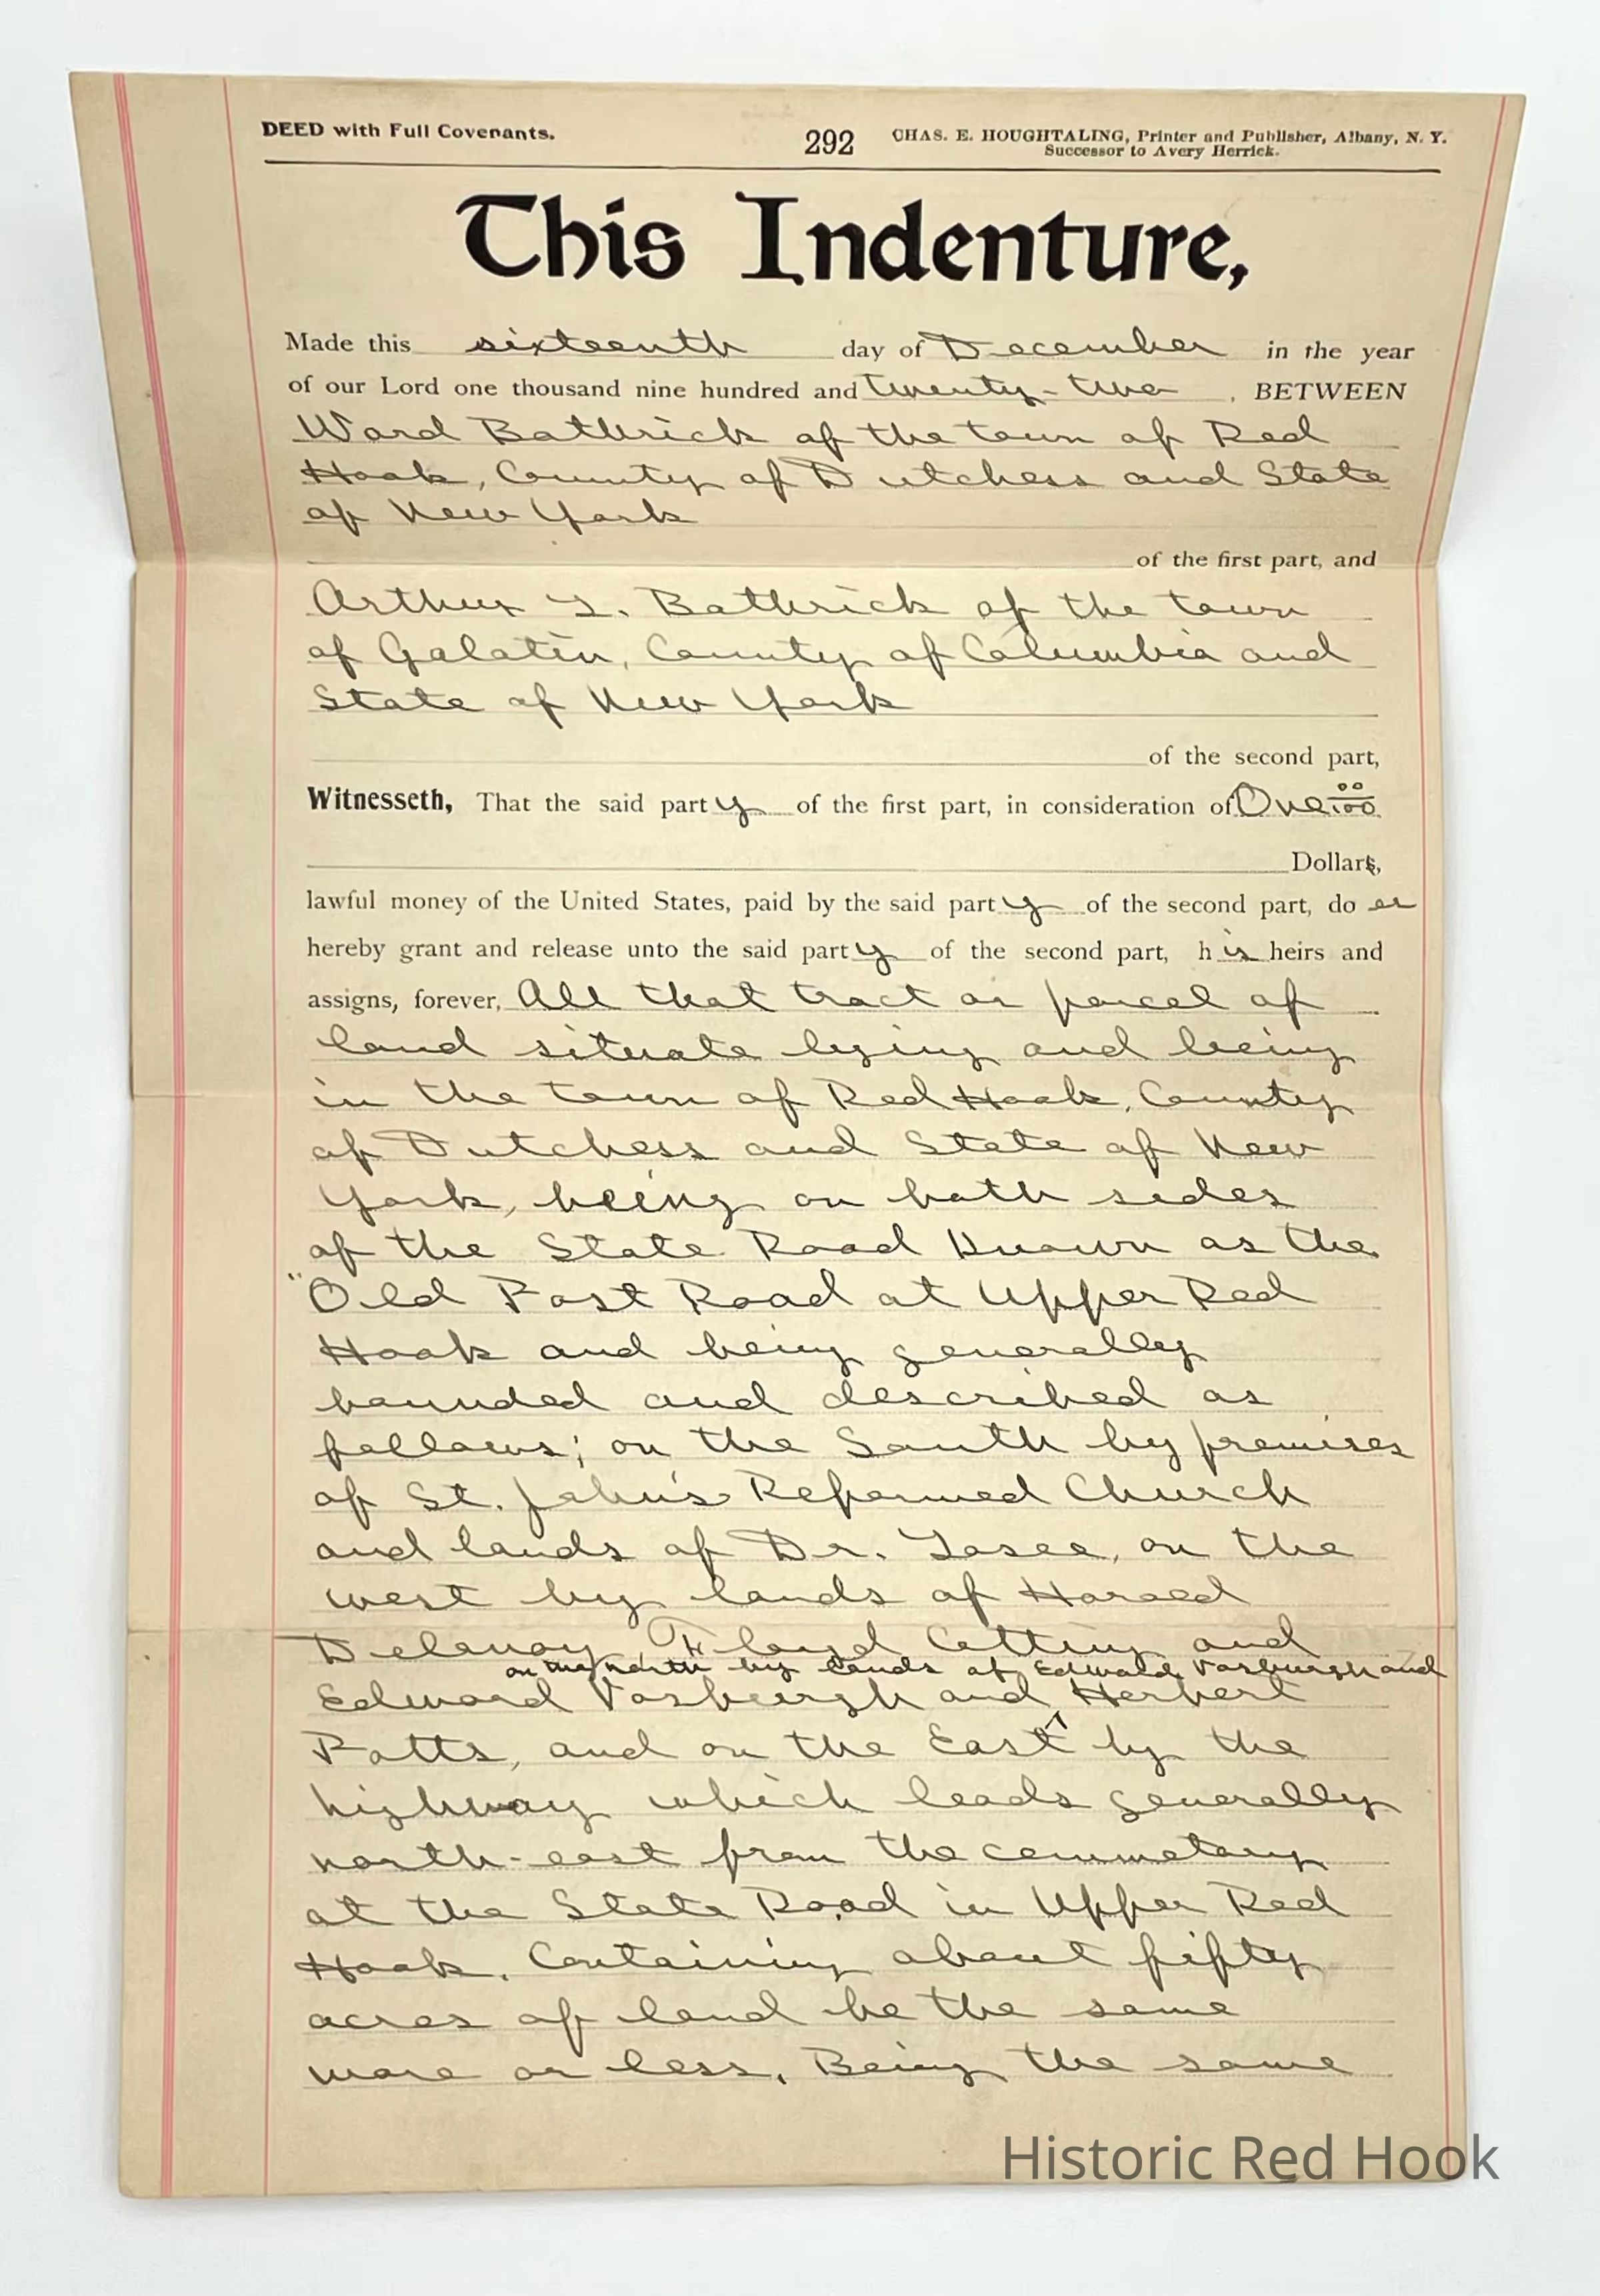 DEED with Full Covenants.
292
CHAS. E. HOUGHTALING, Printer and Publisher, Albany, N. Y.
Successor to Avery Herrick.
This Indenture,
Made this sixteenth day of December in the year
of our Lord one thousand nine hundred and twenty-two, BETWEEN
Ward Bathrick of the town of Red
Hook, County of Dutchess and State
of New York
of the first part, and
Arthur L. Bathrick of the town
of Galatin, County of Columbia and
State of New York
of the second part,
Witnesseth, That the said party of the first part, in consideration of One 00/100
Dollars,
lawful money of the United States, paid by the said party of the second part, do es
hereby grant and release unto the said party of the second part, his heirs and
assigns, forever, All that tract or parcel of
land situate lying and being
in the town of Red Hook, County
of Dutchess and State of New
York, being on both sides
of the State Road known as the
"Old Post Road at Upper Red
Hook and being generally
bounded and described as
follows; on the South by premises
of St. John's Reformed Church
and lands of Dr. Losee, on the
west by lands of Harold
Delanoy, Floyd Cotting and
on the north by lands of Edward Vosburgh and
Edward Vosburgh and Herbert
Potts, and on the East by the
highway which leads generally
north-east from the cemmetary
at the State Road in Upper Red
Hook. Containing about fifty
acres of land be the same
more or less. Being the same
Historic Red Hook